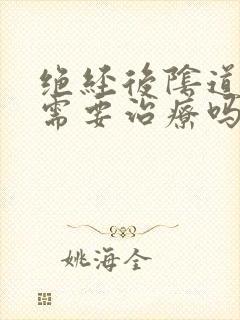 绝经後陰道
需要治療吗
姚海全